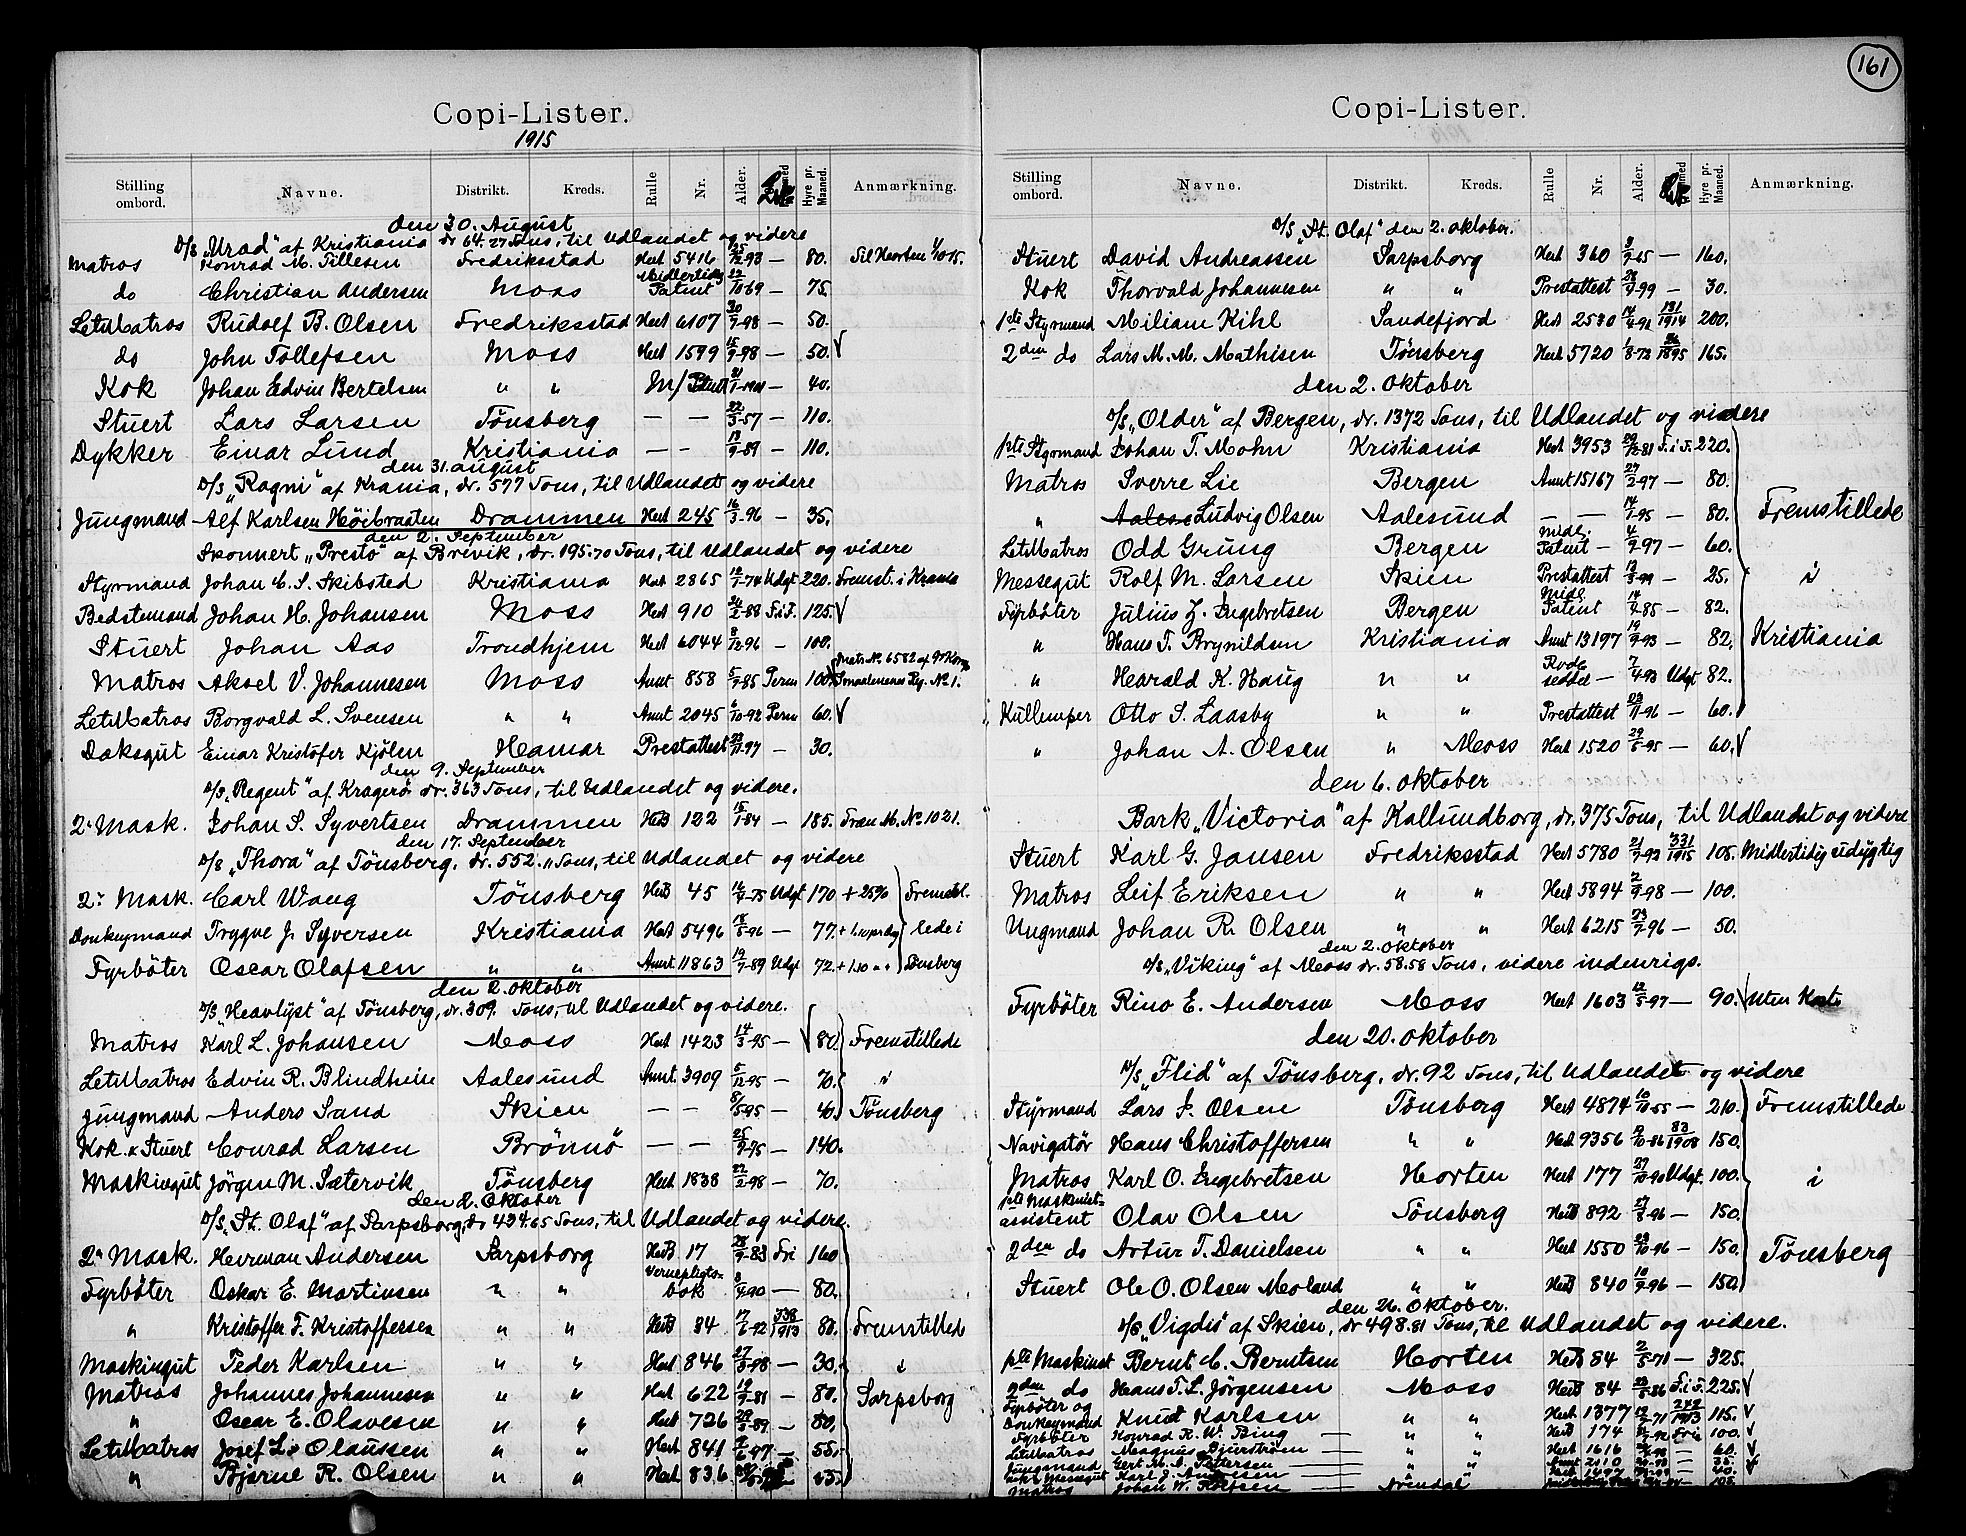 Copi-Lister.
1915
Stilling ombord. Navne. Distrikt. Kreds. Rulle Nr. Alder. Hyre pr. Maaned. Anmærkning.
den 30. August
D/S „Urad" af Kristiania dr. 64.27 Tons, til Udlandet og videre
Matros Konrad M. Tillesen Fredriksstad Hved 5416 80. Til Horten 1/10 15.
do Christian Andersen Moss Midlertidig Patent 22/10-69 — 75.
LetMatros Rudolf B. Olsen Fredriksstad Hved 6107 30/9-98 — 50.
do John Tollefsen Moss Hved 1599 15/9-98 — 50. √
Kok Johan Edvin Bertelsen " " M/Patent — 40.
Stuert Lars Larsen Tönsberg — — 22/3-57 — 110.
Dykker Einar Lund Kristiania — — 13/9-89 — 110.
den 31. august
D/S „Ragni" af Krania, dr. 577 Tons, til Udlandet og videre
Jungmand Alf Karlsen Höibraaten Drammen Hved 245 16/3-96 — 35.
den 2. September
Skonnert „Presto" af Brevik, dr. 195.70 Tons, til Udlandet og videre
Styrmand Johan C. S. Skibsted Kristiania Hved 2865 Udgt 220. Fremst. i Krania
Bedstemand Johan H. Johansen Moss Hved 910 F.i.F. 125. √
Stuert Johan Aas Trondhjem Hved 6044 8/12-96 — 100.
Matros Aksel V. Johannesen Moss Annt 858 5/9-85 Perm 100. Matr. No. 6582 af Smaalenenes Reg. No 1.
LetMatros Borgvald L. Svensen " " Annt 2045 6/10-92 Perm 60. √
Daksgut Einar Kristofer Kjölen Hamar Prestattest 23/11-97 — 30.
den 9. September
D/S „Regent" af Kragerö dr. 363 Tons, til Udlandet og videre.
2. Mask. Johan S. Syvertsen Drammen HvedB 122 15/1-84 — 185. Fræn M. No 1021.
den 17. September
D/S „Thora" af Tönsberg, dr. 552. „Tons, til Udlandet og videre
2. Mask. Carl Wang Tönsberg HvedB 45 Udgt 170 + 25% Fremstil-
Donkeymand Trygve J. Syversen Kristiania Hved 5496 18/5-96 — 77. + 1.10 pr dag lede i
Fyrböter Oscar Olafsen " " Annt 11863 19/7-89 Udgt 72. + 1.10 " " Tönsberg
den 2. oktober
D/S „Heavlyst" af Tönsberg, dr. 309. Tons, til Udlandet og videre.
Matros Karl L. Johansen Moss Hved 1423 14/3-95 — √ 80. Fremstillede
LetMatros Edvin R. Blindheim Aalesund Annt 3909 5/12-95 — 70. i
Jungmand Anders Sand Skien — — 8/5-95 — 40. Tönsberg
Kok & Stuert Conrad Larsen Brönnö — — 25/9-75 — 140.
Maskingut Jörgen M. Sætervik Tönsberg Hved 1838 22/2-98 — 70.
den 2. Oktober
D/S „St. Olaf" af Sarpsborg, dr 434.65 Tons, til Udlandet og videre.
2. Mask. Herman Andersen Sarpsborg HvedB 17 28/9-83 Fri 160
Fyrböter Oskar E. Martinsen " " Vernepligtsbok 8/4-90 — 80.
" Kristoffer F. Kristoffersen " " HvedB 84 17/6-92 338/1913 80. Fremstillede
Maskingut Peder Karlsen " " Hved 846 27/5-98 — 30. i
Matros Johannes Johannesen " " Hved 622 19/9-81 — 80. Sarpsborg
" Oscar E. Olavesen " " Hved 726 29/3-89 — 80.
LetMatros Josef L. Olaussen " " Hved 841 2/6-97 — 55.
" Bjarne R. Olsen " " Hved 836
161
Copi-Lister.
Stilling ombord. Navne. Distrikt. Kreds. Rulle Nr. Alder. Hyre pr. Maaned. Anmærkning.
D/S „St. Olaf" den 2. oktober.
Stuert David Andreassen Sarpsborg Hved 360 — 160.
Kok Thorvald Johannesen " " Prestattest 28/9-99 — 30.
1ste Styrmand Miliam Kihl Sandefjord Hved 2530 131/1914 200.
2den do Lars M. M. Mathisen Tönsberg Hved 5720 1/8-72 165.
den 2. oktober
D/S „Older" af Bergen, dr. 1372 Tons, til Udlandet og videre
1ste Styrmand Johan T. Mohn Kristiania Hved 3953 29/12-81 F.i.F. 220.
Matros Sverre Lie Bergen Annt 15167 27/2-97 — 80.
" Ludvig Olsen Aalesund — — 14/1-95 — 80. Fremstillede
LetMatros Odd Grung Bergen Midl. Patent — 4/9-97 — 60.
Messegut Rolf M. Larsen Skien Prestattest — 25. i
Fyrböter Julius Z. Engebretsen Bergen Midl. Patent 82.
" Hans T. Brynildsen Kristiania Annt 13197 19/9-93 — 82. Kristiania
" Hearald K. Haug " " Rodeseddel — 7/4-93 Udgt 82.
Kullemper Otto S. Laasby " " Prestattest 23/11-96 — 60.
" Johan A. Olsen " Moss Hved 1520 29/5-95 — 60. √
den 6. oktober
Bark „Victoria" af Kallundborg, dr. 375 Tons, til Udlandet og videre
Stuert Karl G. Jansen Fredriksstad Hved 5780 21/7-92 331/1915 105. Midlertidig udygtig
Matros Leif Eriksen " " Hved 5894 2/9-98 — 100.
Ungmand Johan R. Olsen " " Hved 6215 23/7-96 — 50.
den 2. oktober
D/S „Viking" af Moss dr. 58.58 Tons, videre indenrigs.
Fyrböter Rino E. Andersen Moss Hved 1603 12/5-97 — 90. √ Uten Kort
den 20. oktober
M/S „Flid" af Tönsberg, dr. 92 Tons, til Udlandet og videre
Styrmand Lars J. Olsen Tönsberg Hved 4874 10/10-55 — 210. Fremstillede
Navigatör Hans Christoffersen " " Hved 9356 9/10-86 83/1908 150.
Matros Karl O. Engebretsen Horten Hved 177 27/10-90 Udgt. 100. i
1ste Maskinist-assistent Olav Olsen Tönsberg HvedB 892 27/5-96 — 150.
2den do Artur T. Danielsen " " Hved 1550 23/10-96 — 150. Tönsberg
Stuert Ole O. Olsen Meoland " " HvedB 840 10/9-96 — 150.
den 26. Oktober.
D/S „Vigdis" af Skien, dr 498.81 Tons, til Udlandet og videre.
1ste Maskinist Bernt C. Berntsen Horten HvedB 84 2/5-71 — 325.
2den do Hans T. L. Jörgensen Moss HvedB 84 F.i.F. 225. √
Fyrböter og Donkeymand Knut Karlsen " " Hved 1377 12/2-71 242/1913 115. √
Fyrböter Konrad R. W. Bing — " " HvedB 174 Fri 100. √
LetMatros Magnus Djurström — " " Hved 1616 — 60. √
Jungmand Gert M. A. Pettersen — " " Annt 2110 — 35. √
Messegut Karl J. Andersen — " " 40.
Matros Johan W. Rolfsen — Arendal 105.